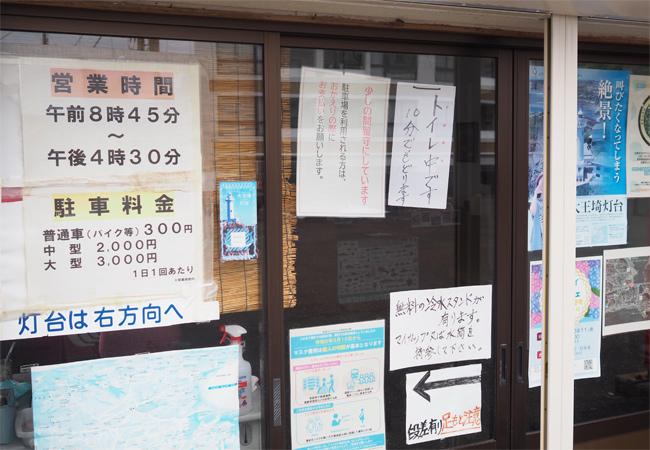 営業時間
午前8時45分
～
午後4時30分
駐車料金
普通車(バイク等)300円
中型 2,000円
大型 3,000円
1日1回あたり
灯台は右方向へ
少しの間留守にしています
駐車場を利用される方は、
おかえりの際に
お支払いをお願いします。
トイレ中です
10分でもどります
無料の冷水スタンドが
有ります。
マイカップ又は水筒を
持参して下さい。
段差有り足もと注意
叫びたくなってしまう
絶景!
大王埼灯台